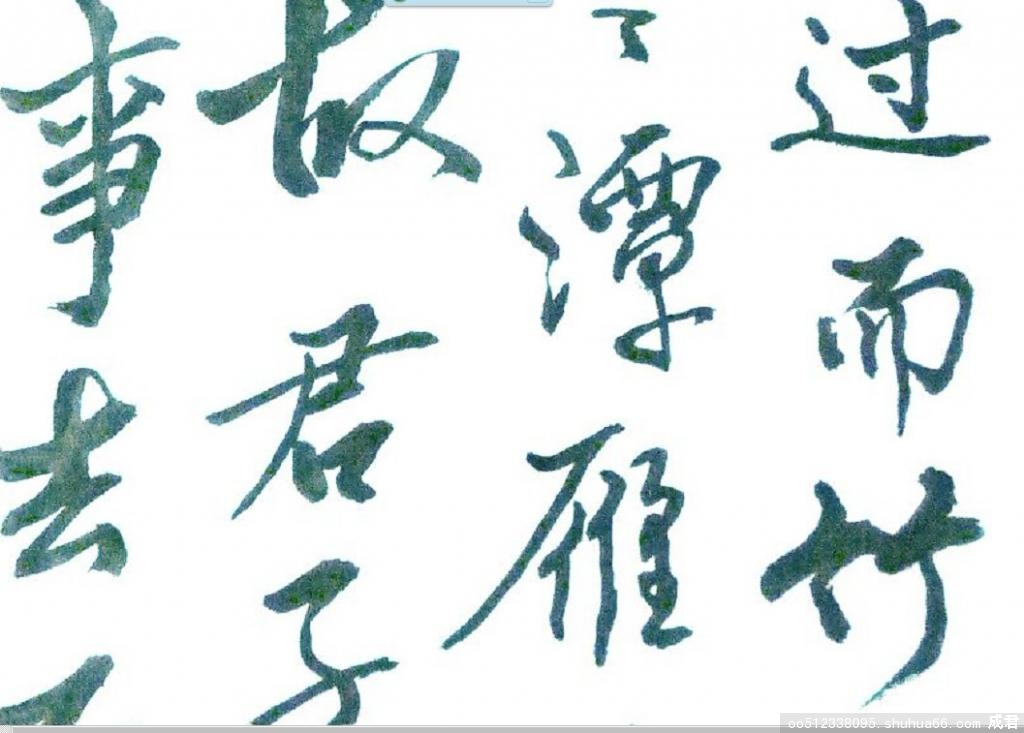 过而竹
潭雁
故君子
事去
oo512338095.shuhua66.com 成君